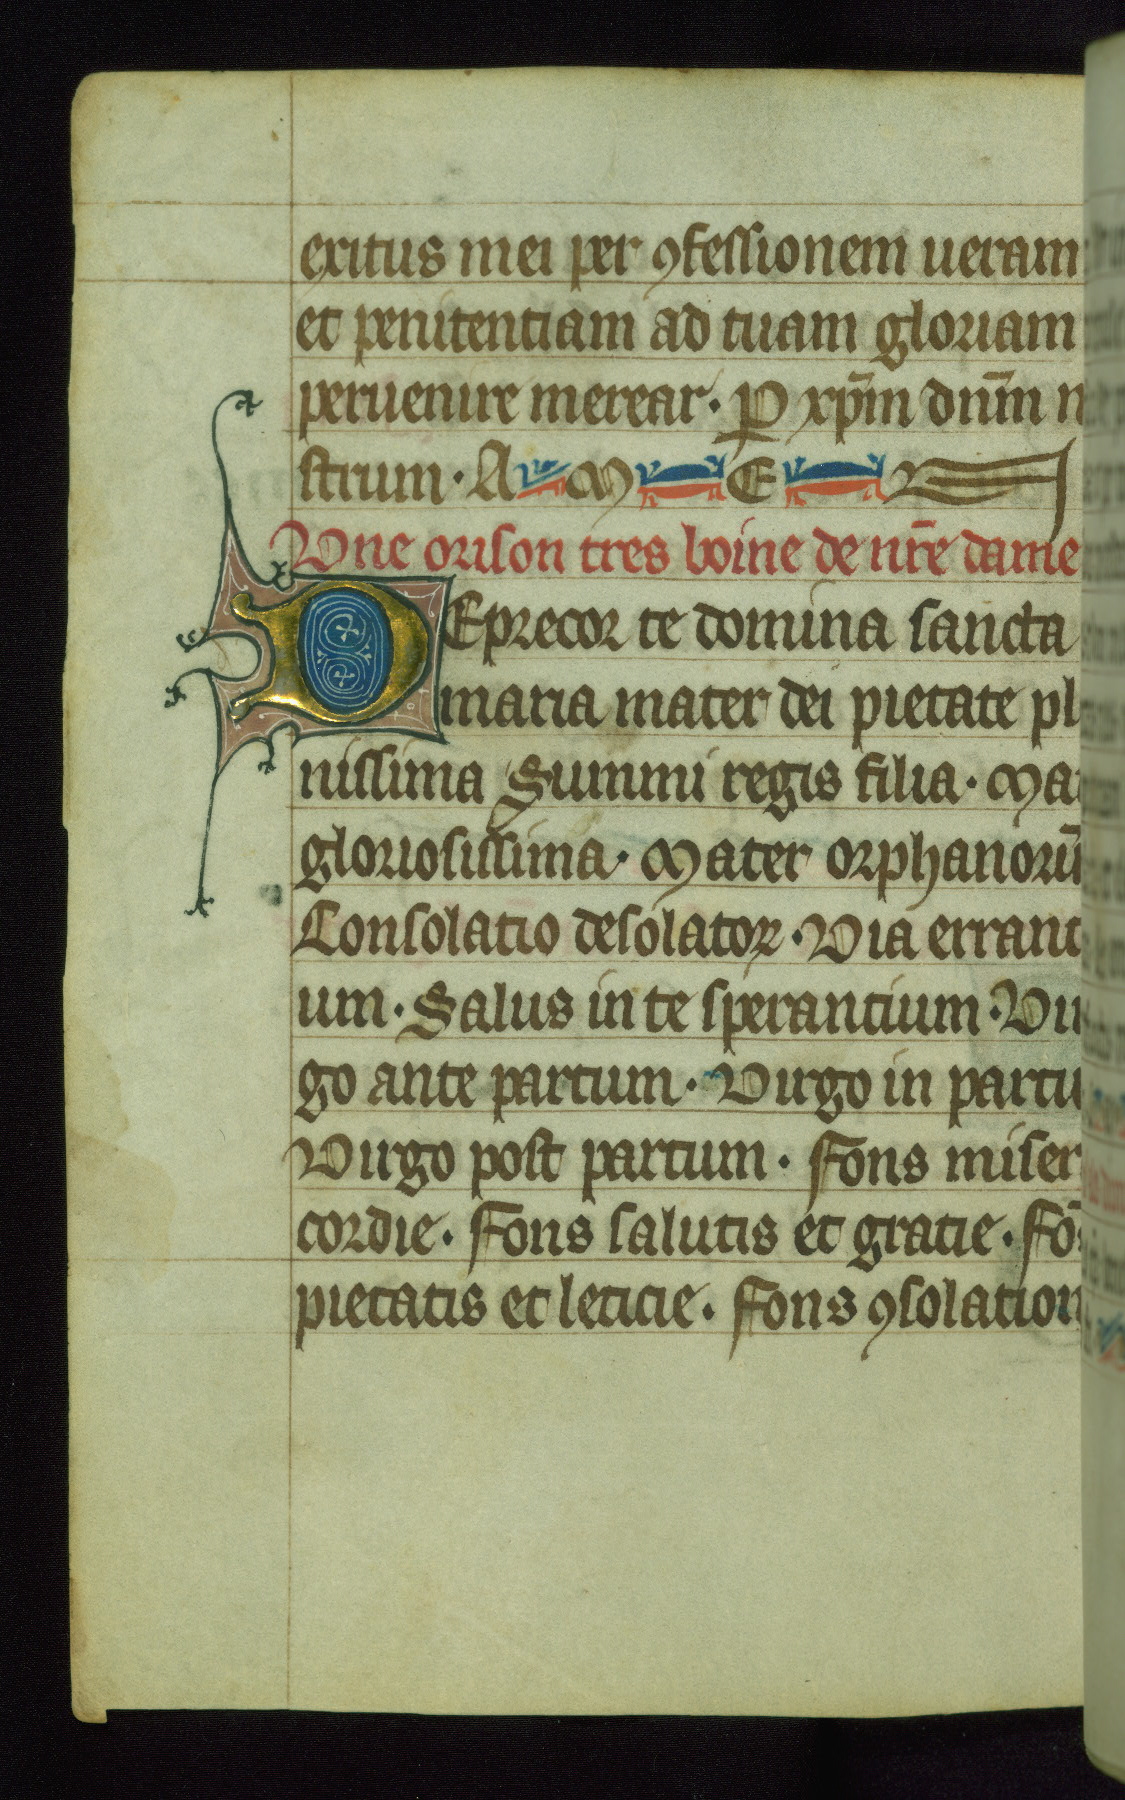 exitus mei per ꝯfessionem ueram
et penitentiam ad tuam gloriam
peruenire merear· P xp̄m dn̄m n
strum· A M E N
Vne orison tres boine de nr̄e dame
DEprecor te domina sancta
maria mater dei pietate pl
nissima Summi regis filia· Ma
gloriosissima· Mater orphanorū
Consolatio desolatoꝝ· Via errant
um· Salus in te sperantium· Vir
go ante partum· Virgo in partu
Virgo post partum· Fons miser
cordie· Fons salutis et gratie· Fō
pietatis et leticie· Fons ꝯsolation